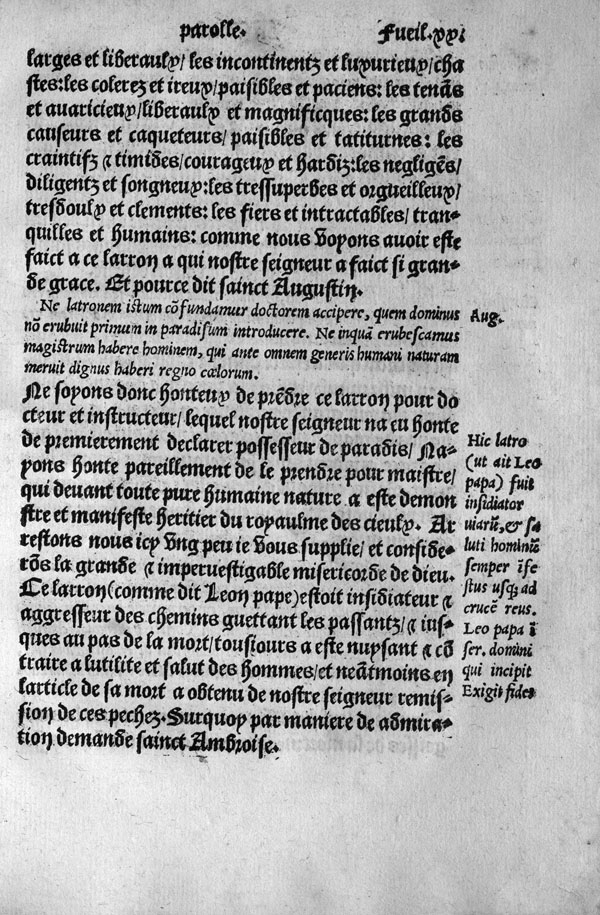 parolle. Fueil.xxi
larges et liberaulx/ les incontinentz et luxurieux/cha
stes:les colerez et ireux/paisibles et paciens: les tenãs
et auaricieux/liberaulx et magnificques: les grands
causeurs et caqueteurs/ paisibles et tatiturnes: les
craintifz & timides/courageux et hardiz:les negligẽs/
diligentz et songneux:les tressuperbes et orgueilleux/
tresdoulx et clements: les fiers et intractables/ tran-
quilles et humains: comme nous voyons auoir este
faict a ce larron a qui nostre seigneur a faict si gran-
de grace. Et pource dit sainct Augustin.
Ne latronem istum cõfundamur doctorem accipere, quem dominus
nõ erubuit primum in paradisum introducere. Ne inquã erubescamus
magistrum habere hominem, qui ante omnem generis humani naturam
meruit dignus haberi regno cœlorum.
Aug.
Ne soyons donc honteux de prẽdre ce larron pour do
cteur et instructeur/ lequel nostre seigneur na eu honte
de premierement declarer possesseur de paradis/ Na-
yons honte pareillement de le prendre pour maistre/
qui deuant toute pure humaine nature a este demon
stre et manifeste heritier du royaulme des cieulx. Ar
restons nous icy vng peu ie vous supplie/ et conside-
rõs la grande & imperuestigable misericorde de dieu.
Ce larron(comme dit Leon pape)estoit insidiateur &
aggresseur des chemins guettant les passantz/& ius-
ques au pas de la mort/tousiours a este nuysant & cõ
traire a lutilite et salut des hommes/et neãtmoins en
larticle de sa mort a obtenu de nostre seigneur remis-
sion de ces pechez. Surquoy par maniere de admira-
tion demande sainct Ambroise.
Hic latro
(ut ait Leo
papa) fuit
insidiator
uiarũ, & sa
luti hominũ
semper ĩfe
stus usq; ad
crucẽ reus.
Leo papa ĩ
ser. domini
qui incipit
Exigit fides